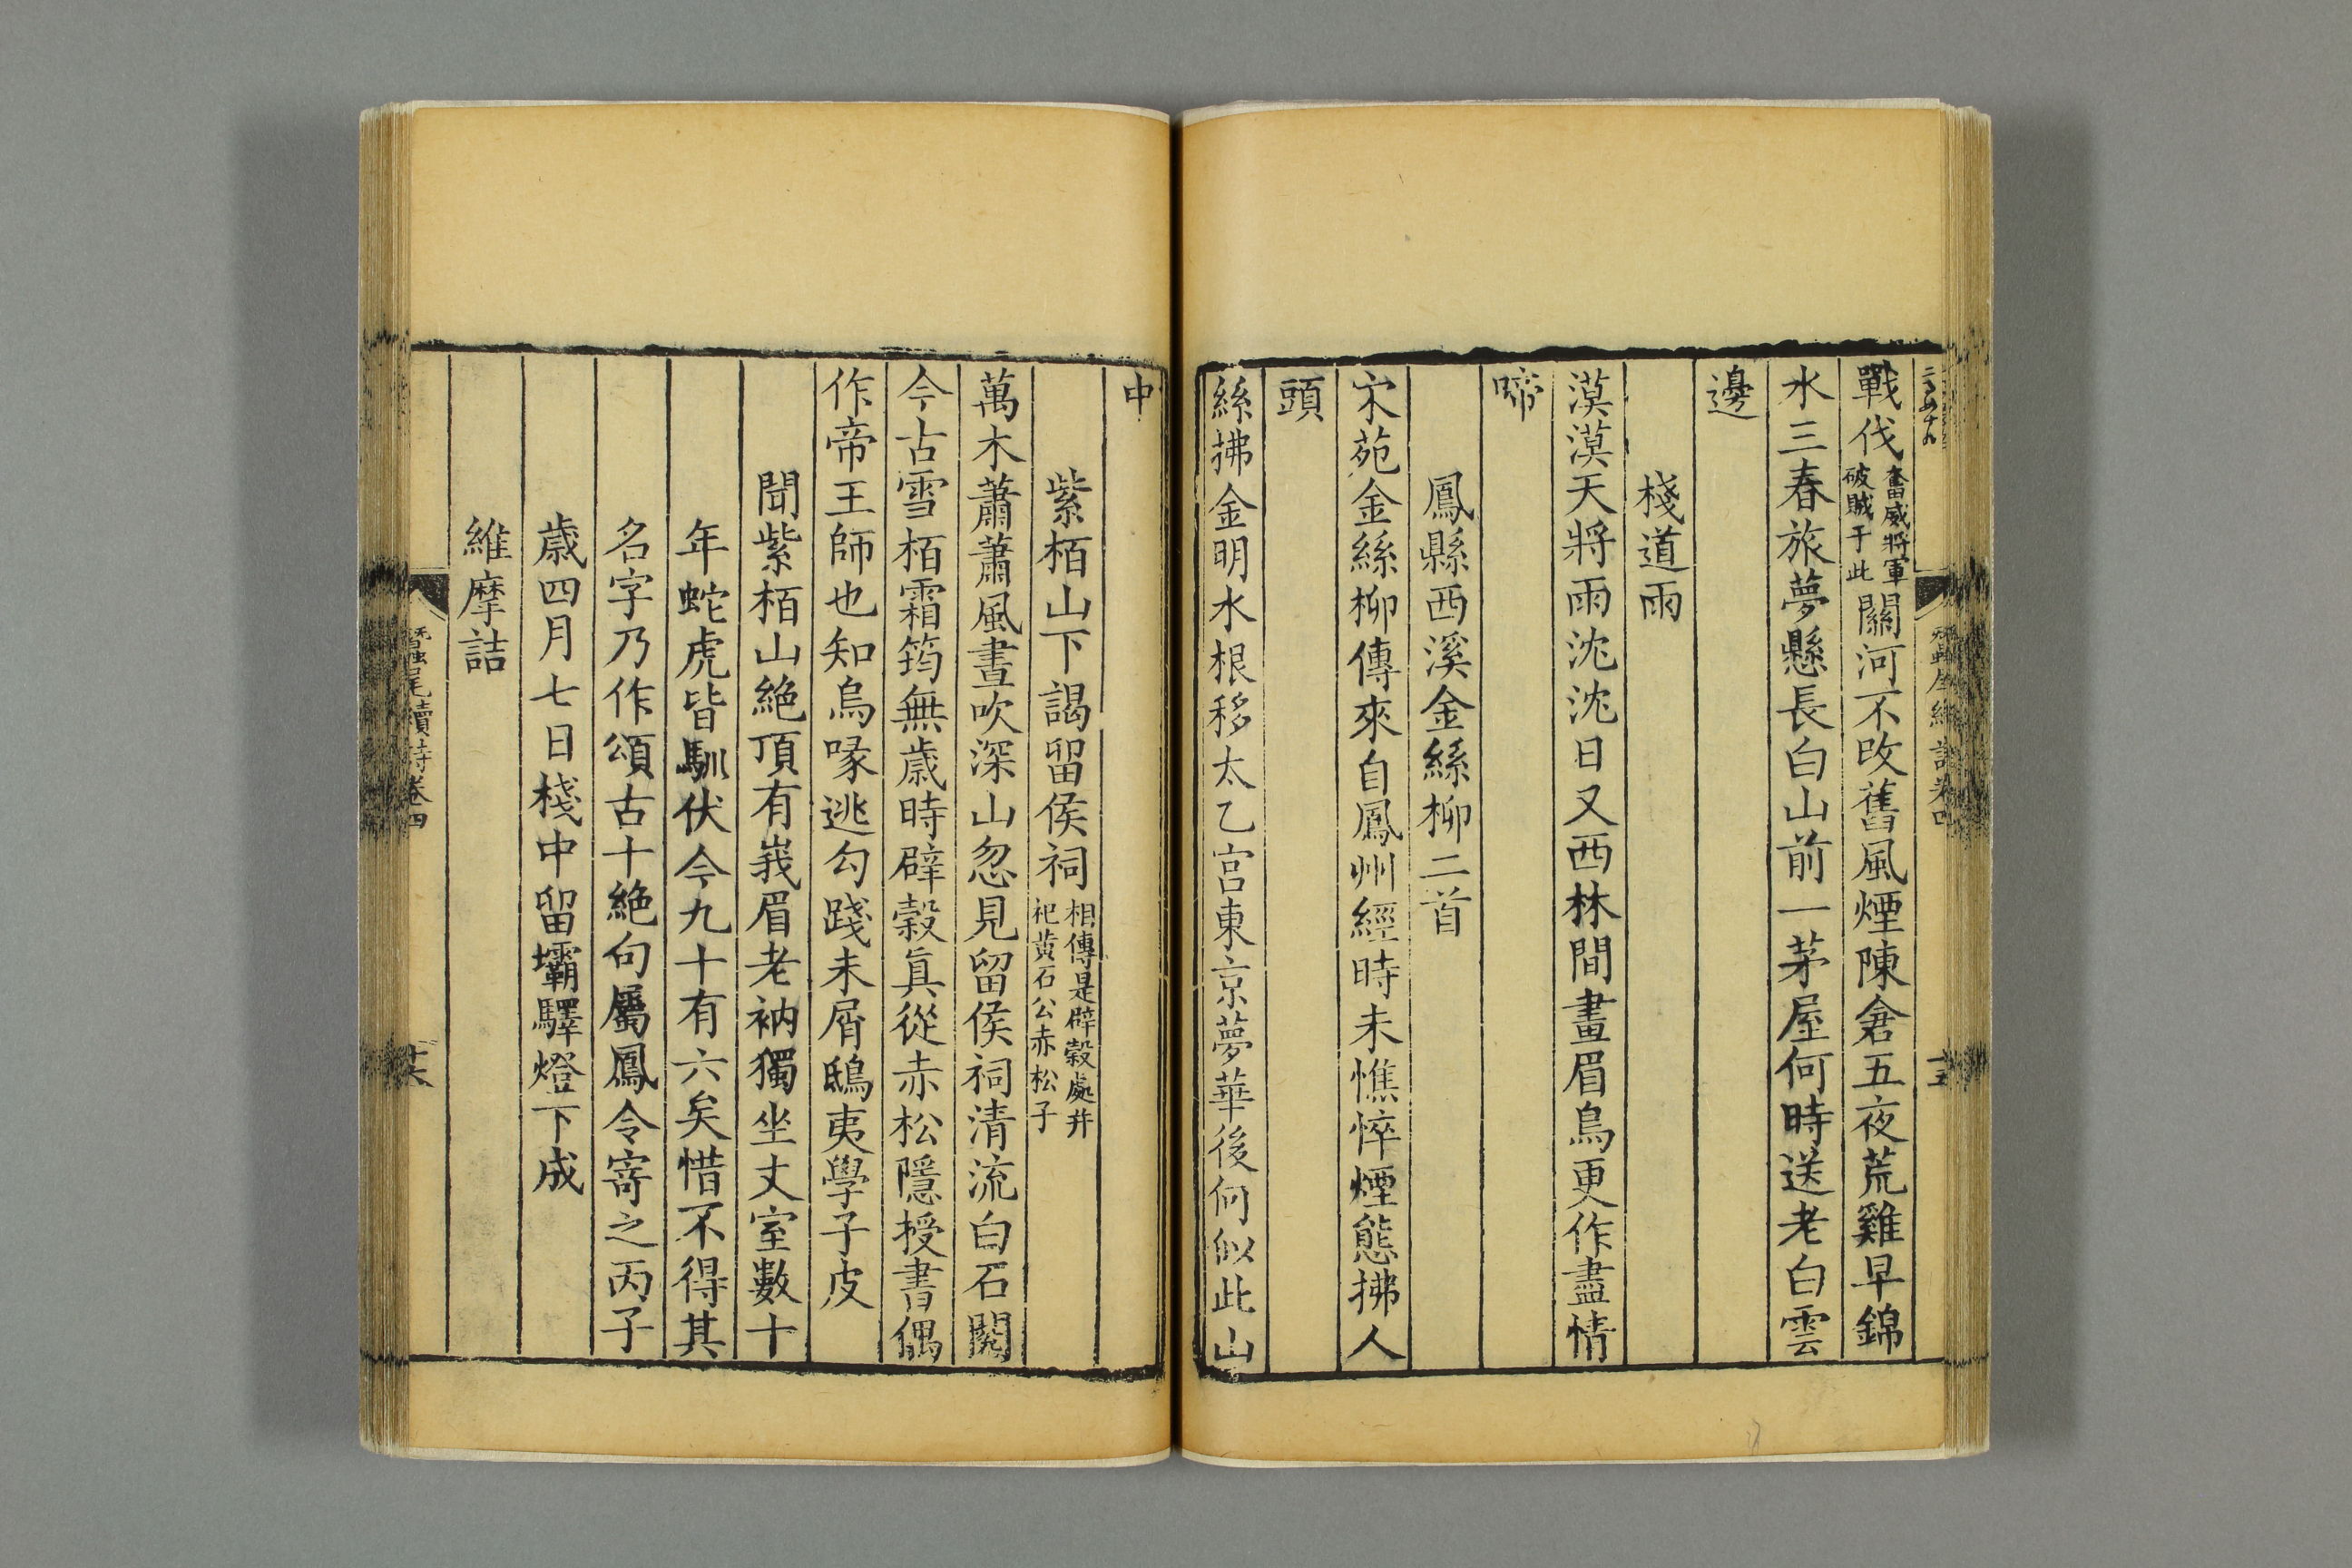 戰伐奮威將軍破賊于此關河不改舊風煙陳倉五夜荒雞早錦
水三春旅夢懸長白山前一茅屋何時送老白雲
邊
棧道雨
漠漠天將雨沈沈日又西林間畫眉鳥更作盡情
啼
鳳縣西溪金絲柳二首
宋苑金絲柳傳來自鳳州經時未憔悴煙態拂人
頭
絲拂金明水根移太乙宮東京夢華後何似此山
中
紫栢山下謁留侯祠相傳是辟穀處并祀黃石公赤松子
萬木蕭蕭風晝吹深山忽見留侯祠清流白石閟
今古雪栢霜筠無歲時辟穀真從赤松隱授書偶
作帝王師也知烏喙逃勾踐未屑鴟夷學子皮
聞紫栢山絕頂有峩眉老衲獨坐丈室數十
年蛇虎皆馴伏今九十有六矣惜不得其
名字乃作頌古十絕句屬鳳令寄之丙子
歲四月七日棧中留壩驛燈下成
維摩詰
蠶尾續詩卷四